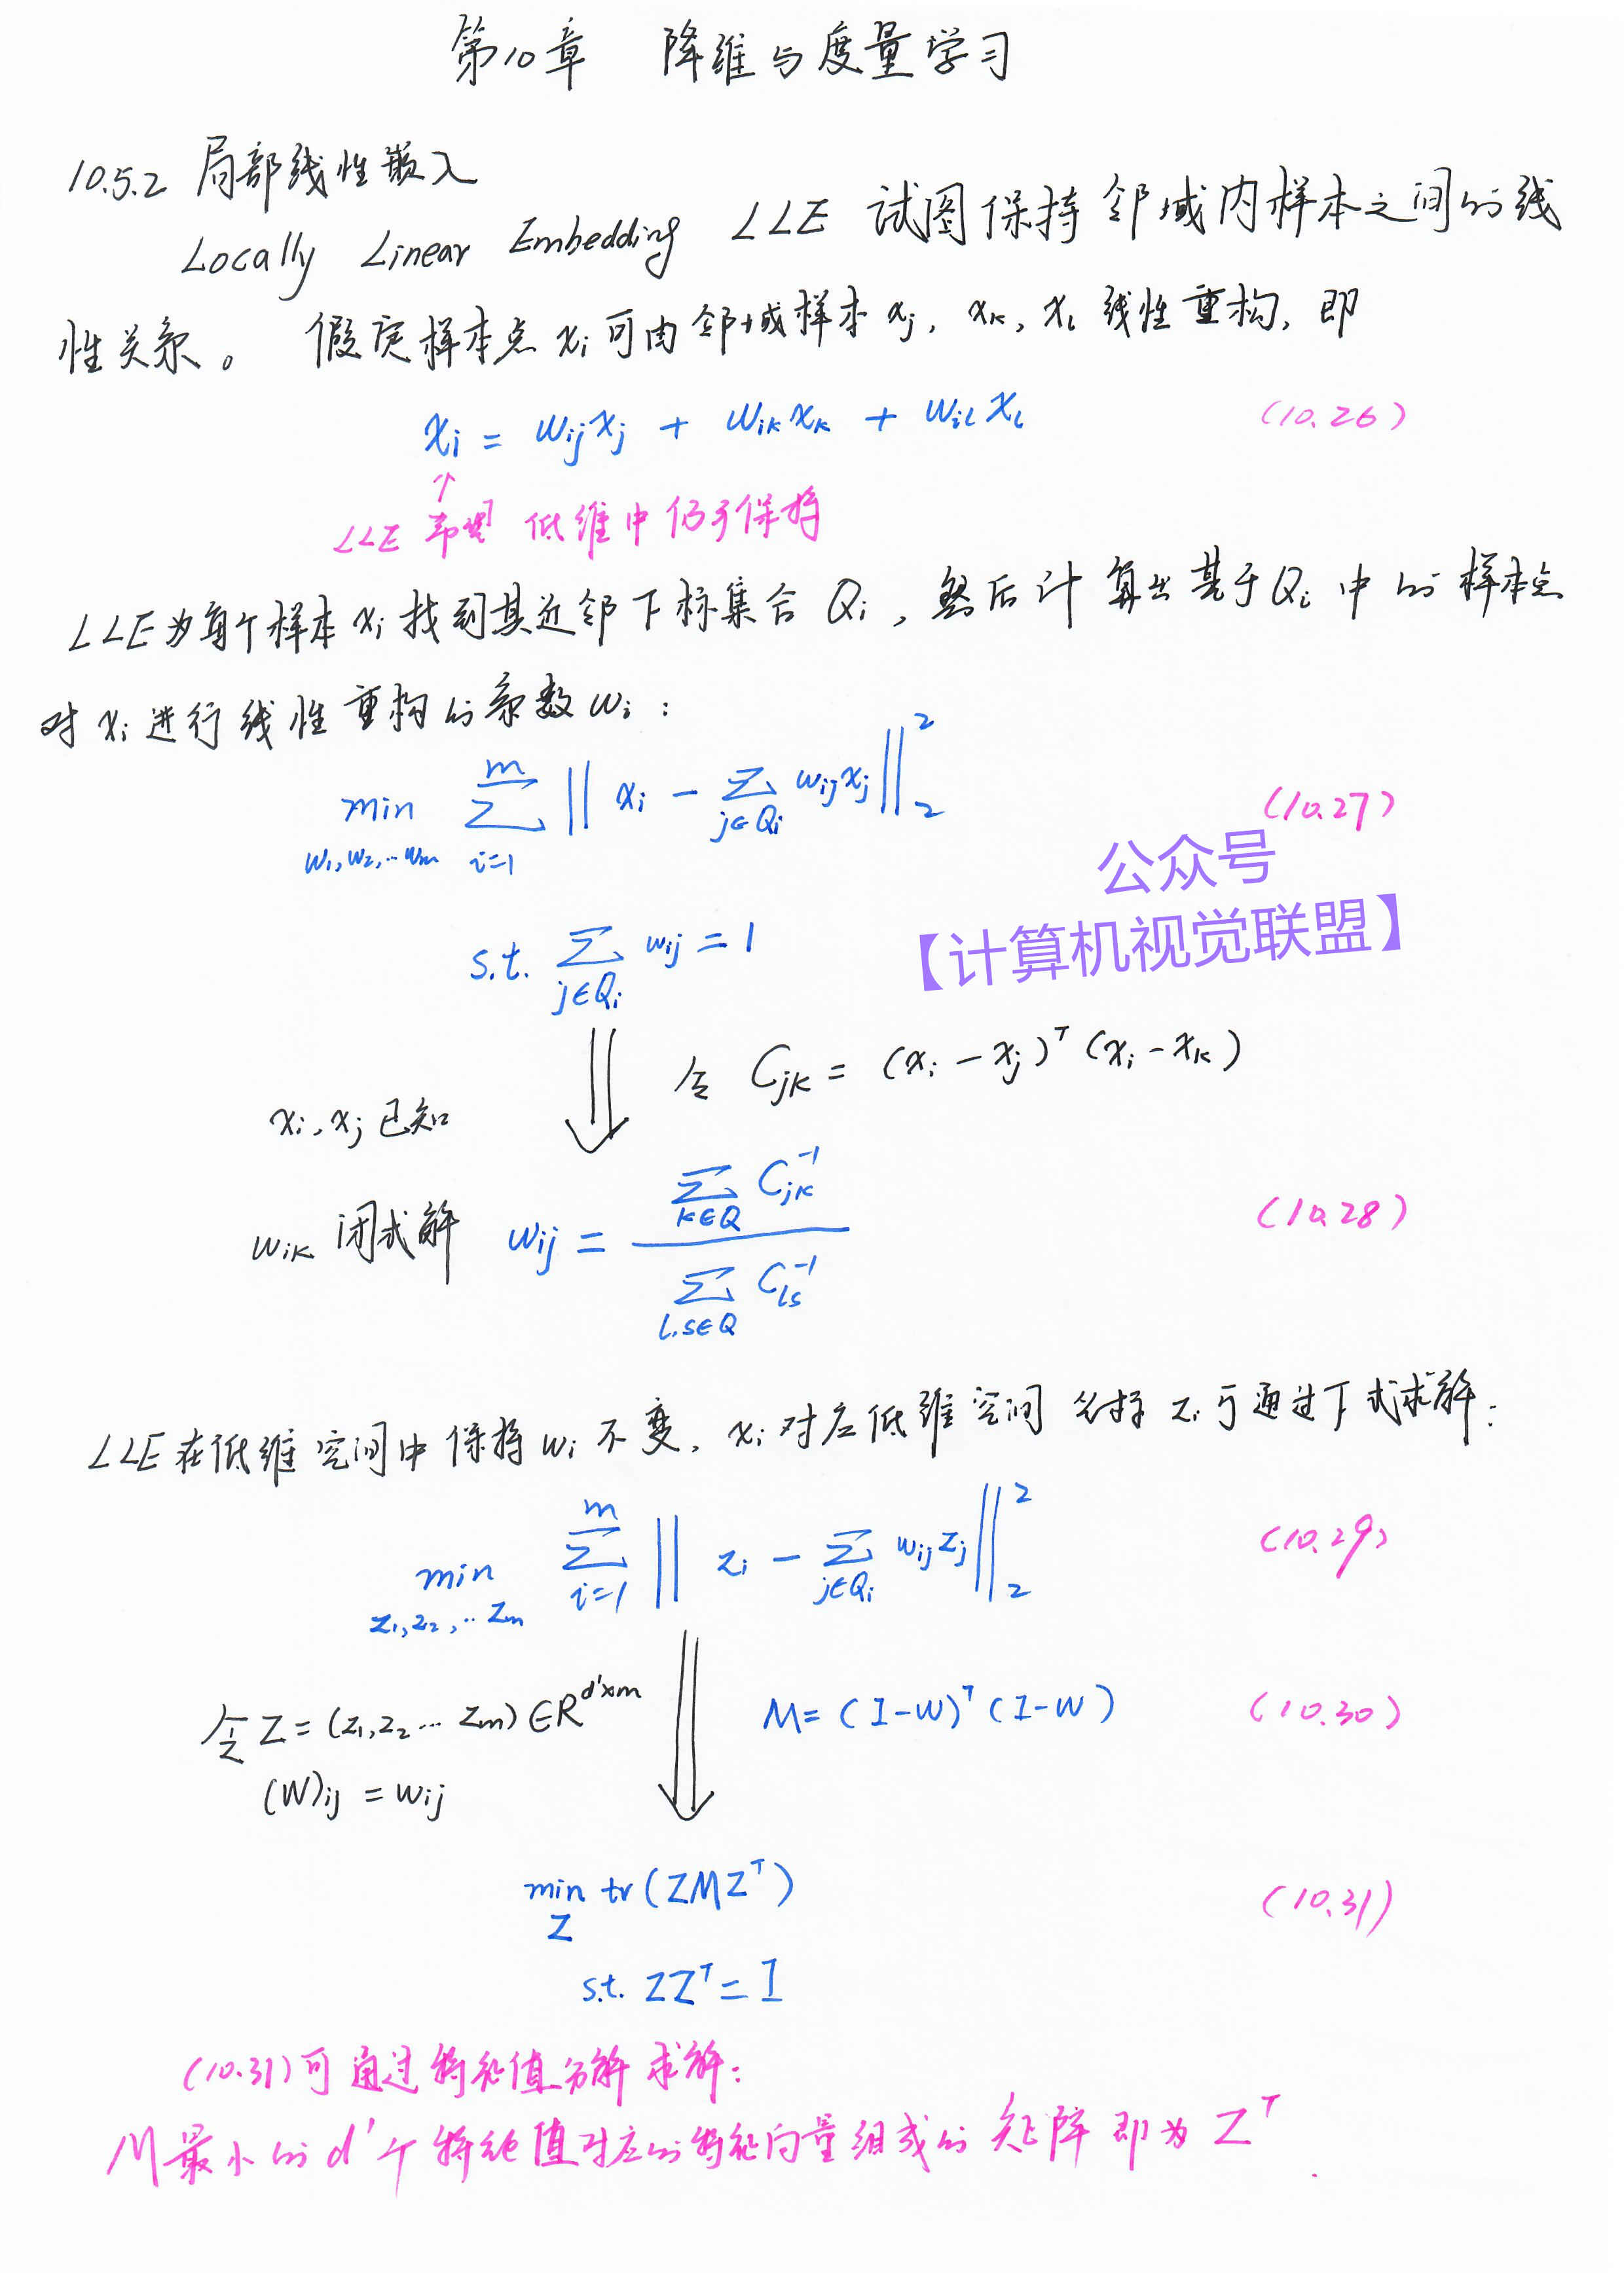 第10章 降维与度量学习
10.5.2 局部线性嵌入
Locally Linear Embedding LLE 试图保持邻域内样本之间的线
性关系。 假定样本点 xᵢ 可由邻域样本 xⱼ, xₖ, xₗ 线性重构, 即
xᵢ = wᵢⱼxⱼ + wᵢₖxₖ + wᵢₗxₗ (10.26)
↑
LLE 希望 低维中仍予保持
LLE为每个样本 xᵢ 找到其近邻下标集合 Qᵢ, 然后计算出基于Qᵢ 中的样本点
对 xᵢ 进行线性重构的系数 wᵢ:
min_{w₁,w₂,··wₘ} ∑_{i=1}^{m} ‖ xᵢ - ∑_{j∈Qᵢ} wᵢⱼxⱼ ‖₂² (10.27)
公众号
s.t. ∑_{j∈Qᵢ} wᵢⱼ = 1
【计算机视觉联盟】
⇓ 令 Cⱼₖ = (xᵢ - xⱼ)ᵀ (xᵢ - xₖ)
xᵢ, xⱼ 已知
wᵢₖ 闭式解 wᵢⱼ = ∑_{k∈Q} Cⱼₖ⁻¹ / ∑_{l,s∈Q} Cₗₛ⁻¹ (10.28)
LLE在低维空间中保持wᵢ不变, xᵢ对应低维空间坐标 zᵢ可通过下式求解:
min_{z₁,z₂,··zₘ} ∑_{i=1}^{m} ‖ zᵢ - ∑_{j∈Qᵢ} wᵢⱼzⱼ ‖₂² (10.29)
令 Z = (z₁,z₂···zₘ) ∈R^{d'×m} ⇓ M = (I-W)ᵀ(I-W) (10.30)
(W)ᵢⱼ = wᵢⱼ
min_Z tr(ZMZᵀ) (10.31)
s.t. ZZᵀ = I
(10.31)可通过特征值分解求解:
M最小的d'个特征值对应的特征向量组成的矩阵即为Zᵀ.